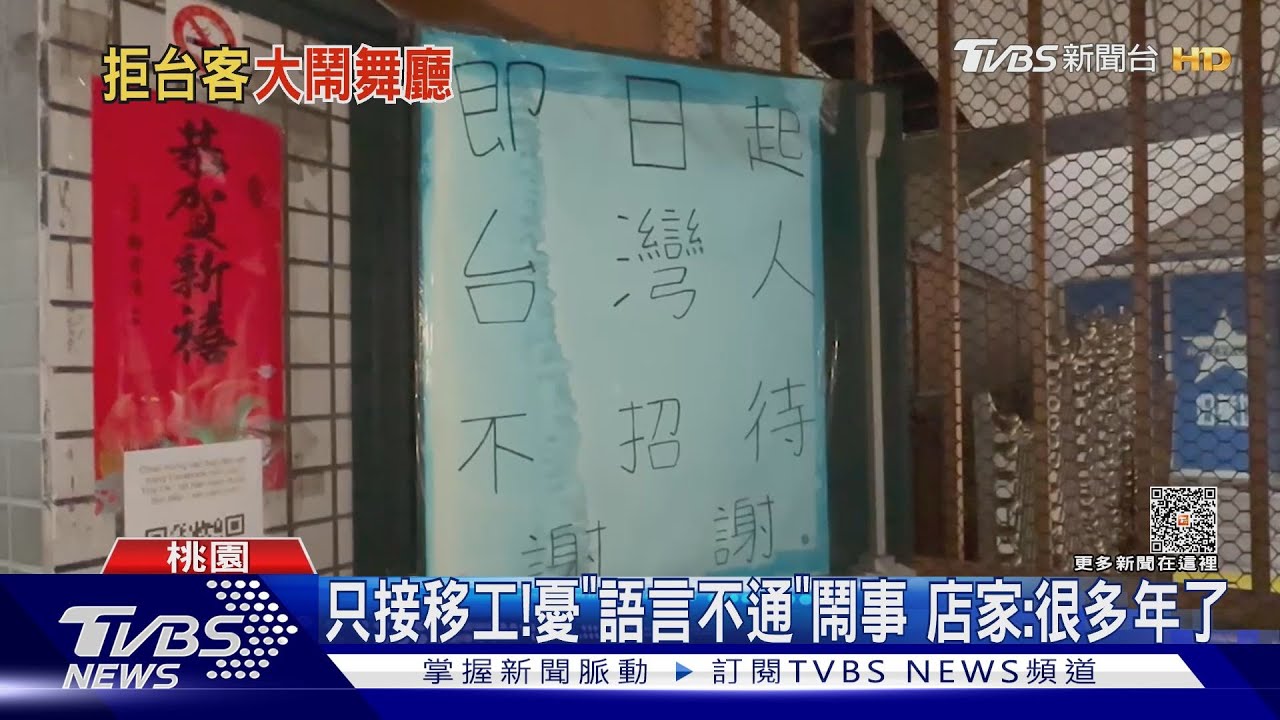 拒台客大鬧舞廳
TVBS新聞台 HD
恭賀新禧
即日起
台灣人
不招待
謝謝.
更多新聞在這裡
桃園
TVBS
NEWS
只接移工!憂"語言不通"鬧事 店家:很多年了
掌握新聞脈動 ▶ 訂閱TVBS NEWS頻道